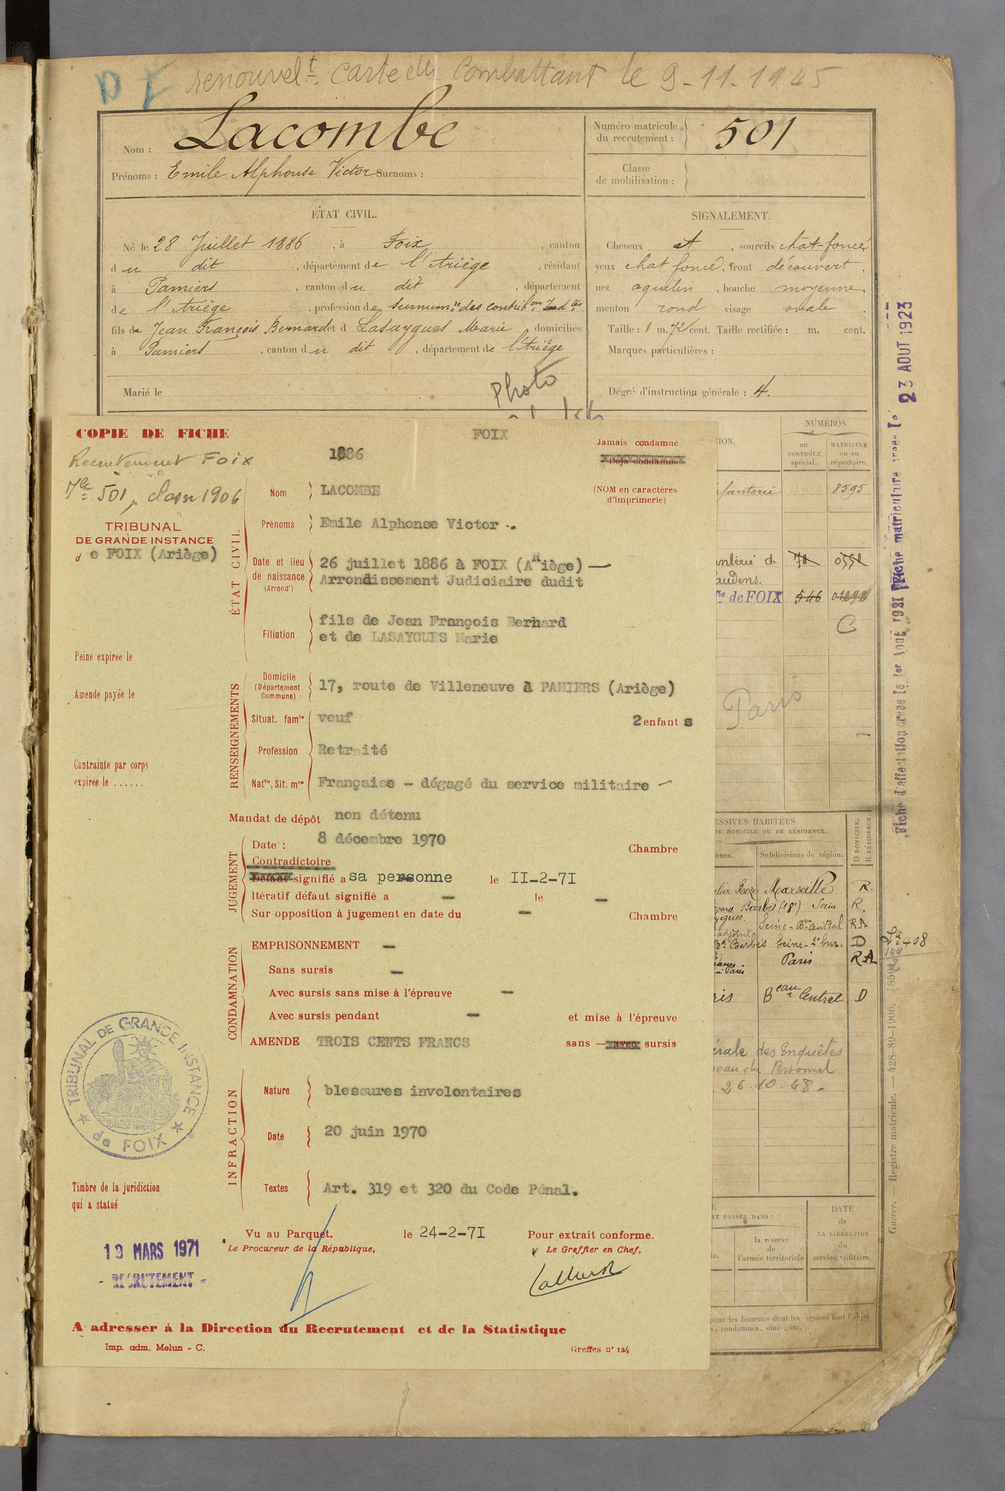 D F renouvelt carte du Combattant le 9-11-1945
Nom : Lacombe
Prénoms : Emile Alphonse Victor Surnoms :
Numéro matricule du recrutement : 501
Classe de mobilisation :
ÉTAT CIVIL.
Né le 28 Juillet 1886, à Foix, canton
du dit, département de l'Ariège, résidant
à Pamiers, canton du dit, département
de l'Ariège, profession de surnumre des contribons Indtes
fils de Jean François Bernard et d Lasaygues Marie domiciliés
à Pamiers, canton du dit, département de l'Ariège
Marié le
Photo
SIGNALEMENT.
Cheveux et, sourcils chat-foncé
yeux chat foncé, front découvert,
nez aquilin, bouche moyenne,
menton rond visage ovale
Taille : 1 m. 72 cent. Taille rectifiée : m. cent.
Marques particulières :
Degré d'instruction générale : 4.
23 AOUT 1923
COPIE DE FICHE
FOIX
Recrutement FOIX
Mle 501, classe 1906
1886
Jamais condamné
Déjà condamné
Nom LACOMBE
(NOM en caractères d'imprimerie)
TRIBUNAL
DE GRANDE INSTANCE
de FOIX (Ariège)
ÉTAT CIVIL
Prénoms Emile Alphonse Victor -.
Date et lieu de naissance (Arrondt) 26 juillet 1886 à FOIX (Ariège) —
Arrondissement Judiciaire dudit
Filiation fils de Jean François Bernard
et de LASAYGUES Marie
Peine expirée le
Amende payée le
Contrainte par corps
expirée le ......
RENSEIGNEMENTS
Domicile (Département Commune) 17, route de Villeneuve à PAMIERS (Ariège)
Situat. famle veuf 2 enfants
Profession Retraité
Natté, Sit. mre Française - dégagé du service militaire -
Mandat de dépôt non détenu
JUGEMENT
Date : 8 décembre 1970 Chambre
Contradictoire
Défaut signifié a sa personne le II-2-7I
Itératif défaut signifié a — le —
Sur opposition à jugement en date du — Chambre
CONDAMNATION
EMPRISONNEMENT —
Sans sursis —
Avec sursis sans mise à l'épreuve —
Avec sursis pendant — et mise à l'épreuve
AMENDE TROIS CENTS FRANCS sans — avec sursis
INFRACTION
Nature blessures involontaires
Date 20 juin 1970
Textes Art. 319 et 320 du Code Pénal.
TRIBUNAL DE GRANDE INSTANCE
de FOIX
Timbre de la juridiction
qui a statué
Vu au Parquet, le 24-2-7I Pour extrait conforme.
Le Procureur de la République, Le Greffier en Chef,
19 MARS 1971
- RECRUTEMENT -
A adresser à la Direction du Recrutement et de la Statistique
Imp. adm. Melun - C. Greffes n° 124
NUMÉROS
au contrôle spécial. matricule ou au répertoire.
nfanterie 8595
de FOIX 546
C
Paris
ESSIVES HABITÉES
DE DOMICILE OU DE RÉSIDENCE.
Subdivisions de région.
D DOMICILE.
R RÉSIDENCE.
Marseille R.
Barbès (18e) Seine R.
Seine - Bau Central RA
Bd Barbès Seine - 2e bur. D
Paris RA
ris Beau Central D
408
érale des Enquêtes
eau du Personnel
26-10-48-
la réserve de l'armée territoriale
DATE de LA LIBÉRATION du service militaire.
Guerre. — Registre matricule. — 428-89-1906.